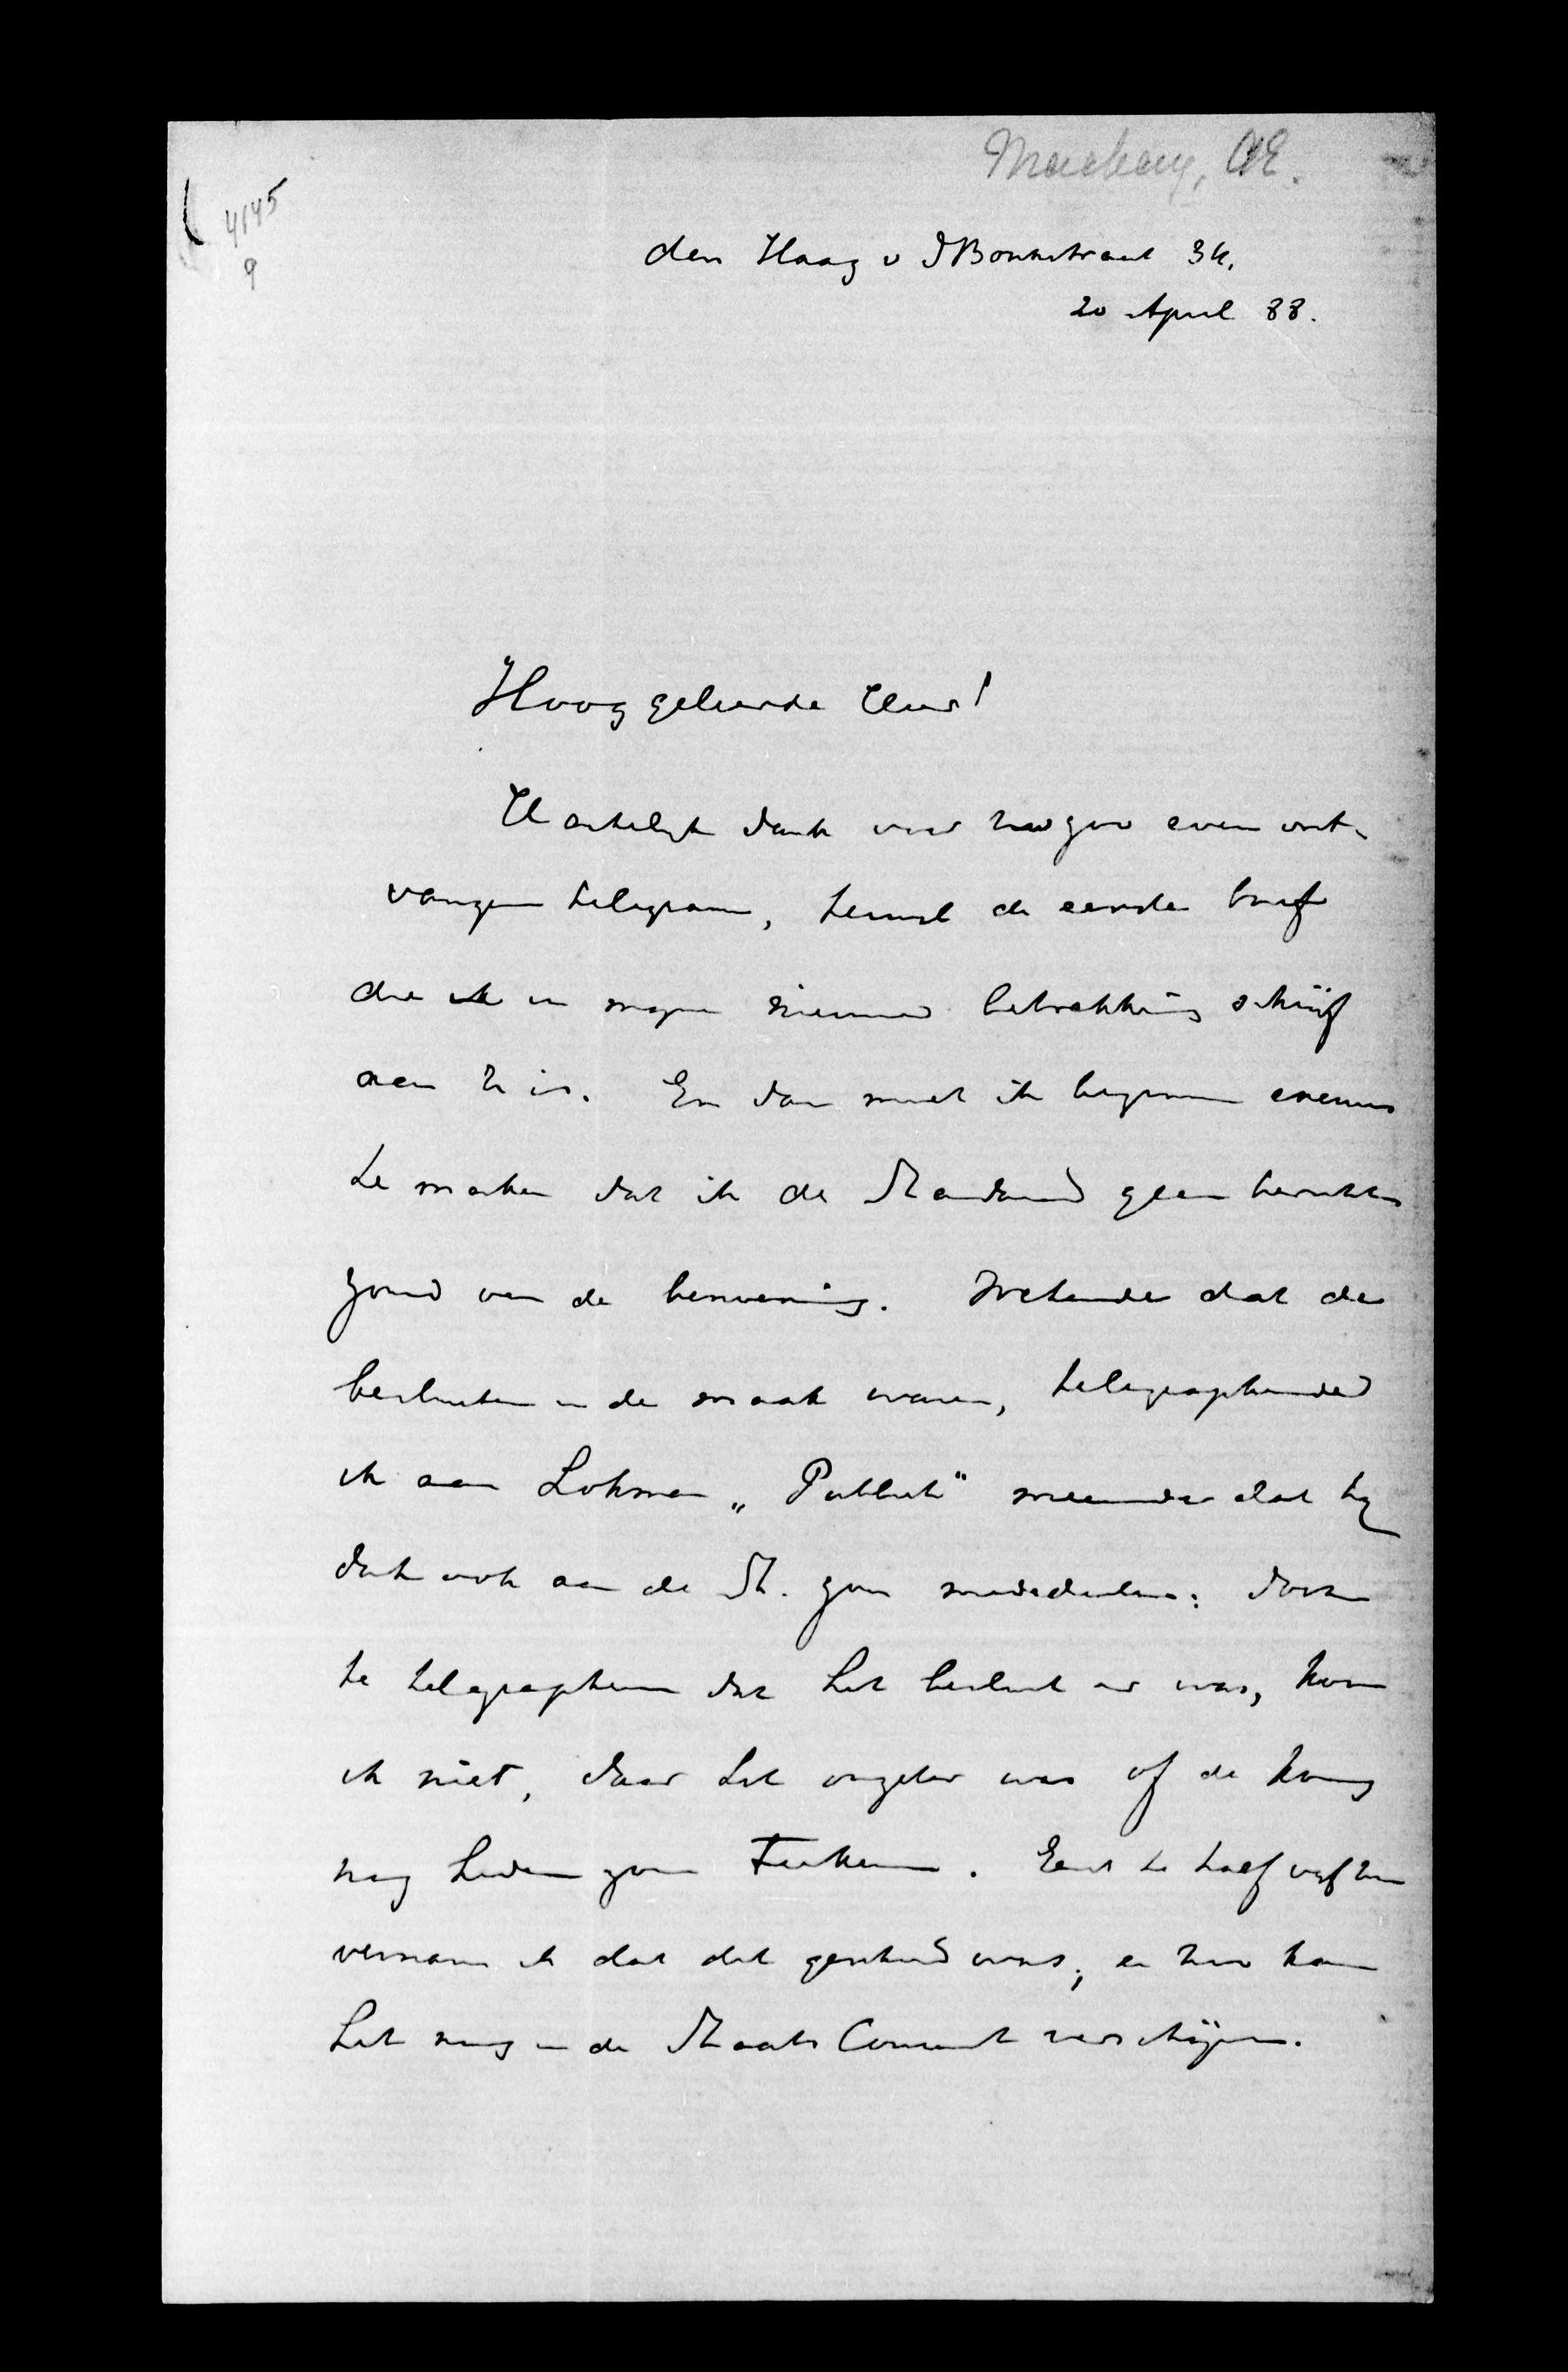 Mackay, AE.
4145
9
den Haag v d Boschstraat 34.
20 April 88.
Hooggeleerde Heer!
Hartelijk dank voor Uw zoo even ont-
vangen telegram, terwijl de eerste brief
die ik in mijne nieuwe betrekking schrijf
aan U is. En dan moet ik beginnen excuus
te maken dat ik de Standaard geen berichten
zond van de benoeming. Wetende dat de
besluiten in de maak waren, telegrapheerde
ik aan Lohman „Publiek" meenende dat hij
dat ook aan de St. zou mededeelen: doch
te telegrapheeren dat het besluit er was, kon
ik niet, daar het onzeker was of de Koning
nog heden zou teekenen. Eerst te half vijf uur
vernam ik dat dit geschied was; en toen kon
het nog in de Staats Courant verschijnen.